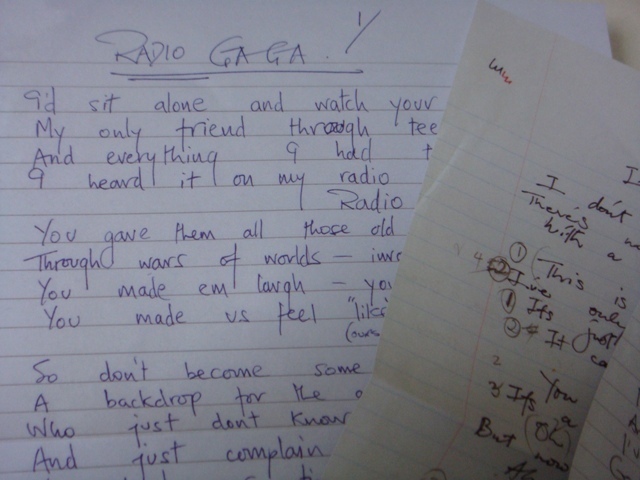 RADIO GA GA. 1/
I'd sit alone and watch your
My only friend through tee
And everything I had t
I heard it on my radio
Radio
You gave them all those old
Through wars of worlds – inva
You made em laugh – you
You made us feel "like
So don't become some
A backdrop for the
Who just dont know
And just complain
I don't
There's
with a
① (This is
② I've only
① Its just
② It
You
3 Its a
But (OK) now